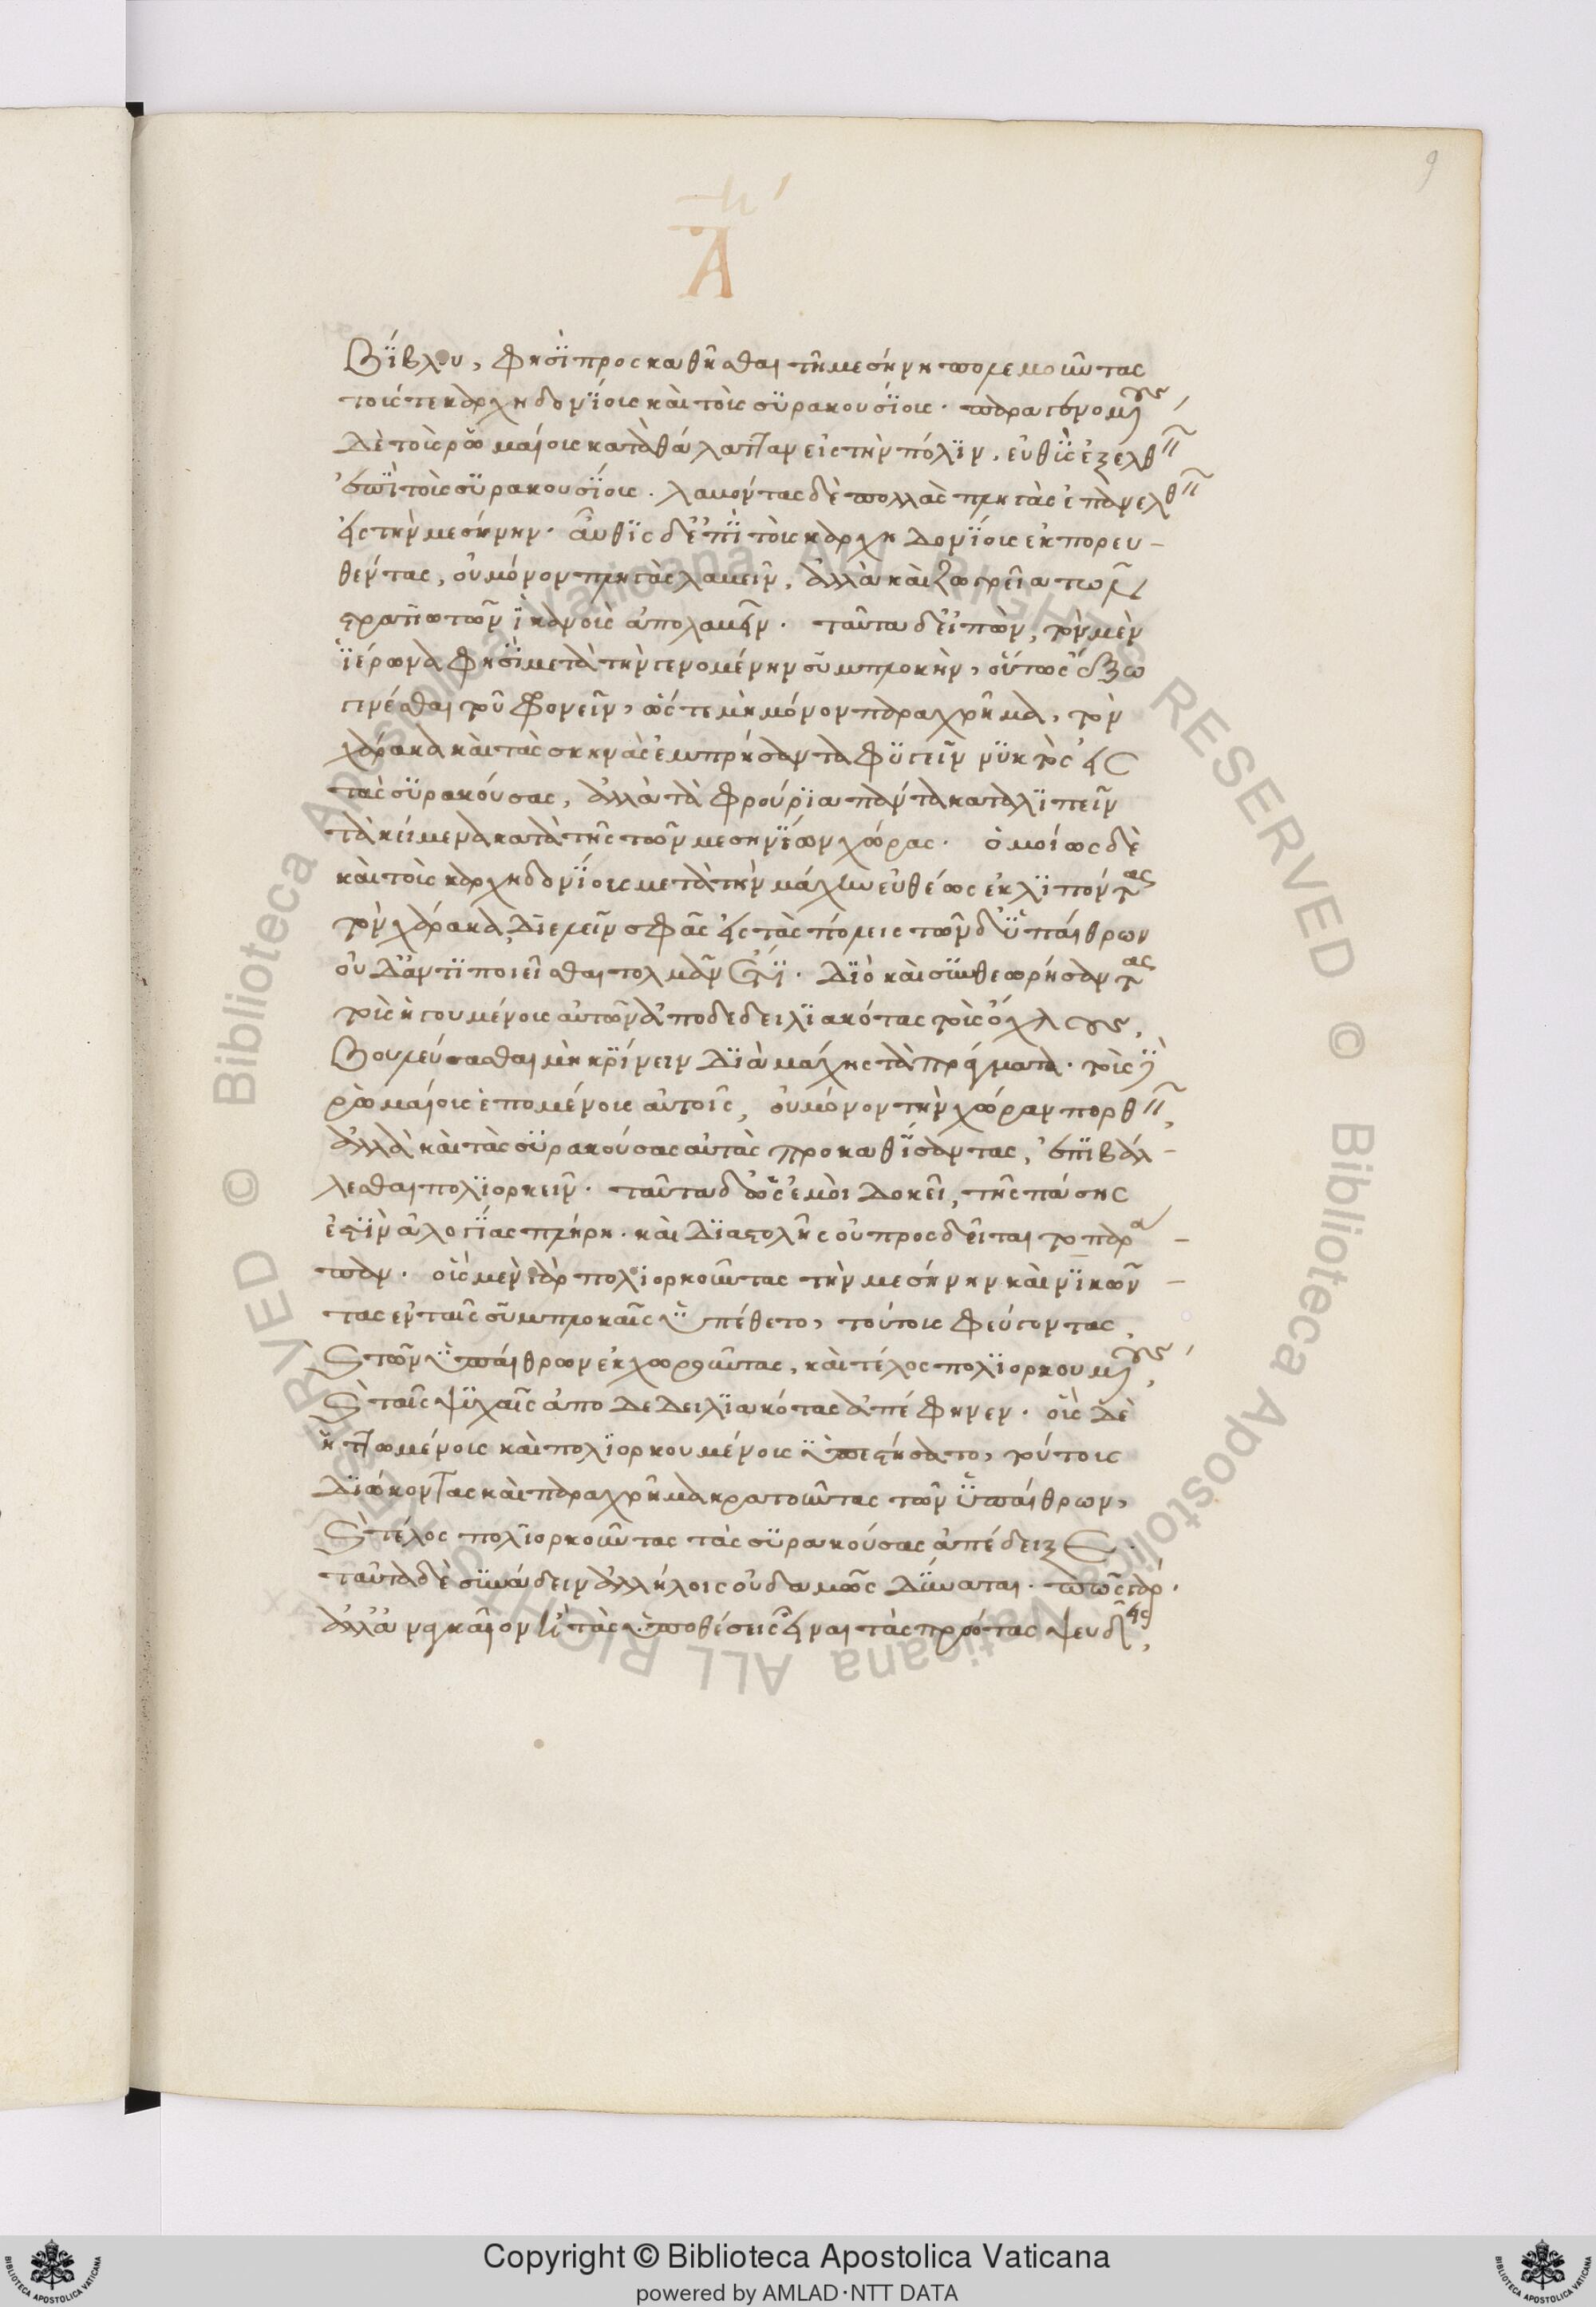 9
Α
βίβλου, φησὶ προσκαθῆσθαι τῇ μεσήνῃ πολεμοῦντας
τούς τε καρχηδονίους καὶ τοὺς συρακουσίους. παραγενομένους
δὲ τοὺς ῥωμαίους κατὰ θάλατταν εἰς τὴν πόλιν, εὐθὺς ἐξελθεῖν
ἐπὶ τοὺς συρακουσίους. λαβόντας δὲ πολλὰς πληγὰς ἐπανελθεῖν
εἰς τὴν μεσήνην. αὖθις δ' ἐπὶ τοὺς καρχηδονίους ἐκπορευ-
θέντας, οὐ μόνον πληγὰς λαβεῖν, ἀλλὰ καὶ ζωγρεία τῶν
στρατιωτῶν ἱκανοὺς ἀπολαβεῖν. ταῦτα δ' εἰπὼν, τὸν μὲν
ἱέρωνα φησὶ μετὰ τὴν γενομένην συμπλοκὴν, οὕτως ἔξω
γενέσθαι τοῦ φονεῖν, ὥστε μὴ μόνον παραχρῆμα, τὸν
χάρακα καὶ τὰς σκηνὰς ἐμπρήσαντα φυγεῖν νυκτὸς εἰς
τὰς συρακούσας, ἀλλὰ τὰ φρούρια πάντα καταλιπεῖν
τὰ κείμενα κατὰ τῆς τῶν μεσηνίων χώρας. ὁμοίως δὲ
καὶ τοὺς καρχηδονίους μετὰ τὴν μάχην εὐθέως ἐκλιπόντας
τὸν χάρακα, διελεῖν σφᾶς εἰς τὰς πόλεις τῶν δ' ὑπαίθρων
οὐδ' ἀντιποιεῖσθαι τολμᾶν ἔτι. διὸ καὶ συνθεωρήσαντας
τοὺς ἡγουμένους αὐτῶν ἀποδεδειλιακότας τοὺς ὄχλους,
βουλεύσασθαι μὴ κρίνειν διὰ μάχης τὰ πράγματα. τοὺς δὲ
ῥωμαίους ἑπομένους αὐτοῖς, οὐ μόνον τὴν χώραν πορθεῖν,
ἀλλὰ καὶ τὰς συρακούσας αὐτὰς προκαθίσαντας, ἐπιβάλ-
λεσθαι πολιορκεῖν. ταῦτα δ' ὡς ἐμοὶ δοκεῖ, τῆς πάσης
ἐστὶν ἀλογίας πλήρη. καὶ διαστολῆς οὐ προσδεῖται τὸ παρά-
παν. οὓς μὲν γὰρ πολιορκοῦντας τὴν μεσήνην καὶ νικῶν-
τας ἐν ταῖς συμπλοκαῖς ὑπέθετο, τούτους φεύγοντας,
καὶ τῶν ὑπαίθρων ἐκχωροῦντας, καὶ τέλος πολιορκουμένους,
καὶ ταῖς ψυχαῖς ἀποδεδειλιακότας ἀπέφηνεν. οὓς δὲ
ἡττωμένους καὶ πολιορκουμένους ὑπεστήσατο, τούτους
διώκοντας καὶ παραχρῆμα κρατοῦντας τῶν ὑπαίθρων,
καὶ τέλος πολιορκοῦντας τὰς συρακούσας ἀπέδειξε.
ταῦτα δὲ συνάδειν ἀλλήλοις οὐδαμῶς δύναται. πῶς γάρ.
ἀλλ' ἀναγκαῖον ἢ τὰς ὑποθέσεις εἶναι τὰς πρώτας ψευδεῖς,
Copyright © Biblioteca Apostolica Vaticana
powered by AMLAD·NTT DATA